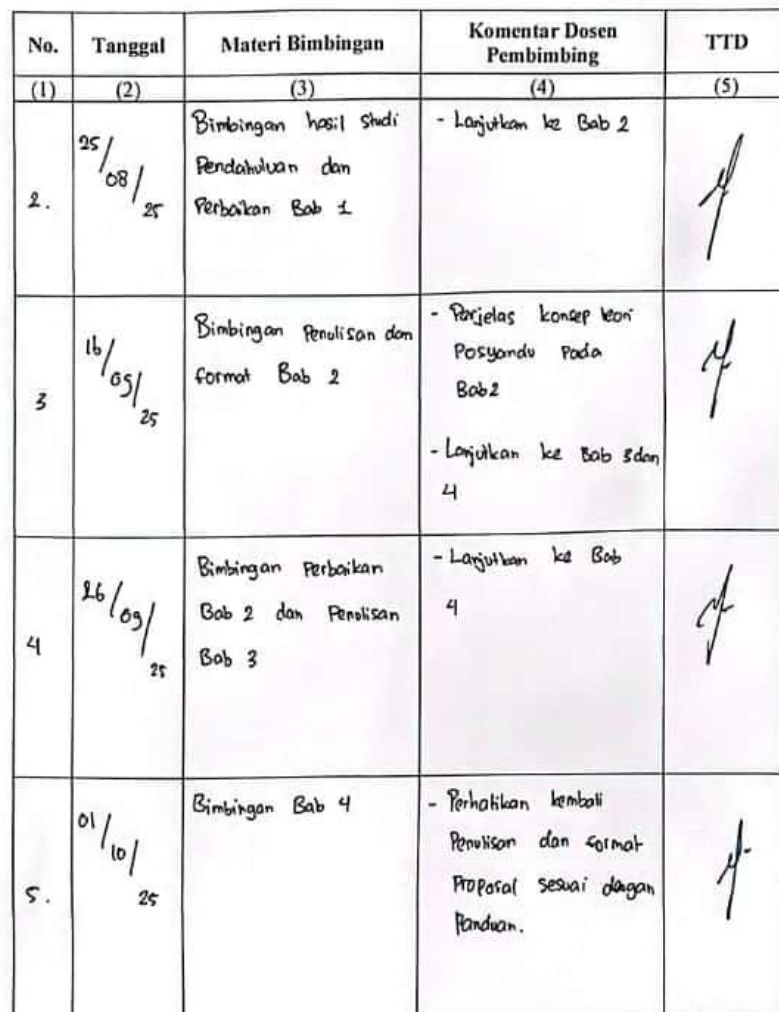 No. Tanggal Materi Bimbingan Komentar Dosen Pembimbing TTD
(1) (2) (3) (4) (5)
2.
25/08/25
Bimbingan hasil studi
Pendahuluan dan
Perbaikan Bab 1
- Lanjutkan ke Bab 2
3
16/09/25
Bimbingan Penulisan dan
format Bab 2
- Perjelas konsep teori
Posyandu Pada
Bab2
- Lanjutkan ke Bab 3 dan
4
4
26/09/25
Bimbingan Perbaikan
Bab 2 dan Penulisan
Bab 3
- Lanjutkan ke Bab
4
5.
01/10/25
Bimbingan Bab 4
- Perhatikan kembali
Penulisan dan format
Proposal sesuai dengan
Panduan.